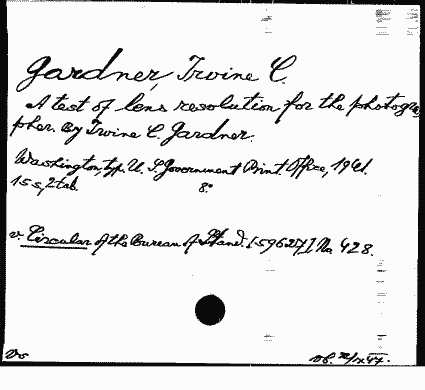 Gardner, Irvine C.
A test of lens resolution for the photogra
pher. By Irvine C. Gardner.
Washington, typ. U. S. Government Print. Office, 1941.
15 s, 2 tab. 8°
v. Circular of the Bureau of Stand. I No 428.